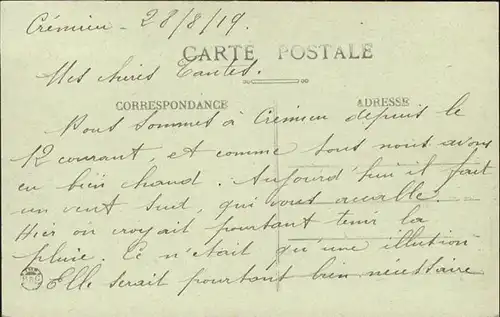 Crémieu - 28/8/19.
CARTE POSTALE
Mes chères Tantes.
CORRESPONDANCE
ADRESSE
Nous sommes à Crémieu depuis le
12 courant, et comme tous nous avons
eu bien chaud. Aujourd'hui il fait
un vent Sud, qui vous accable.
Hier on croyait pourtant tenir la
pluie. Ce n'était qu'une illution
Elle serait pourtant bien nécéssaire